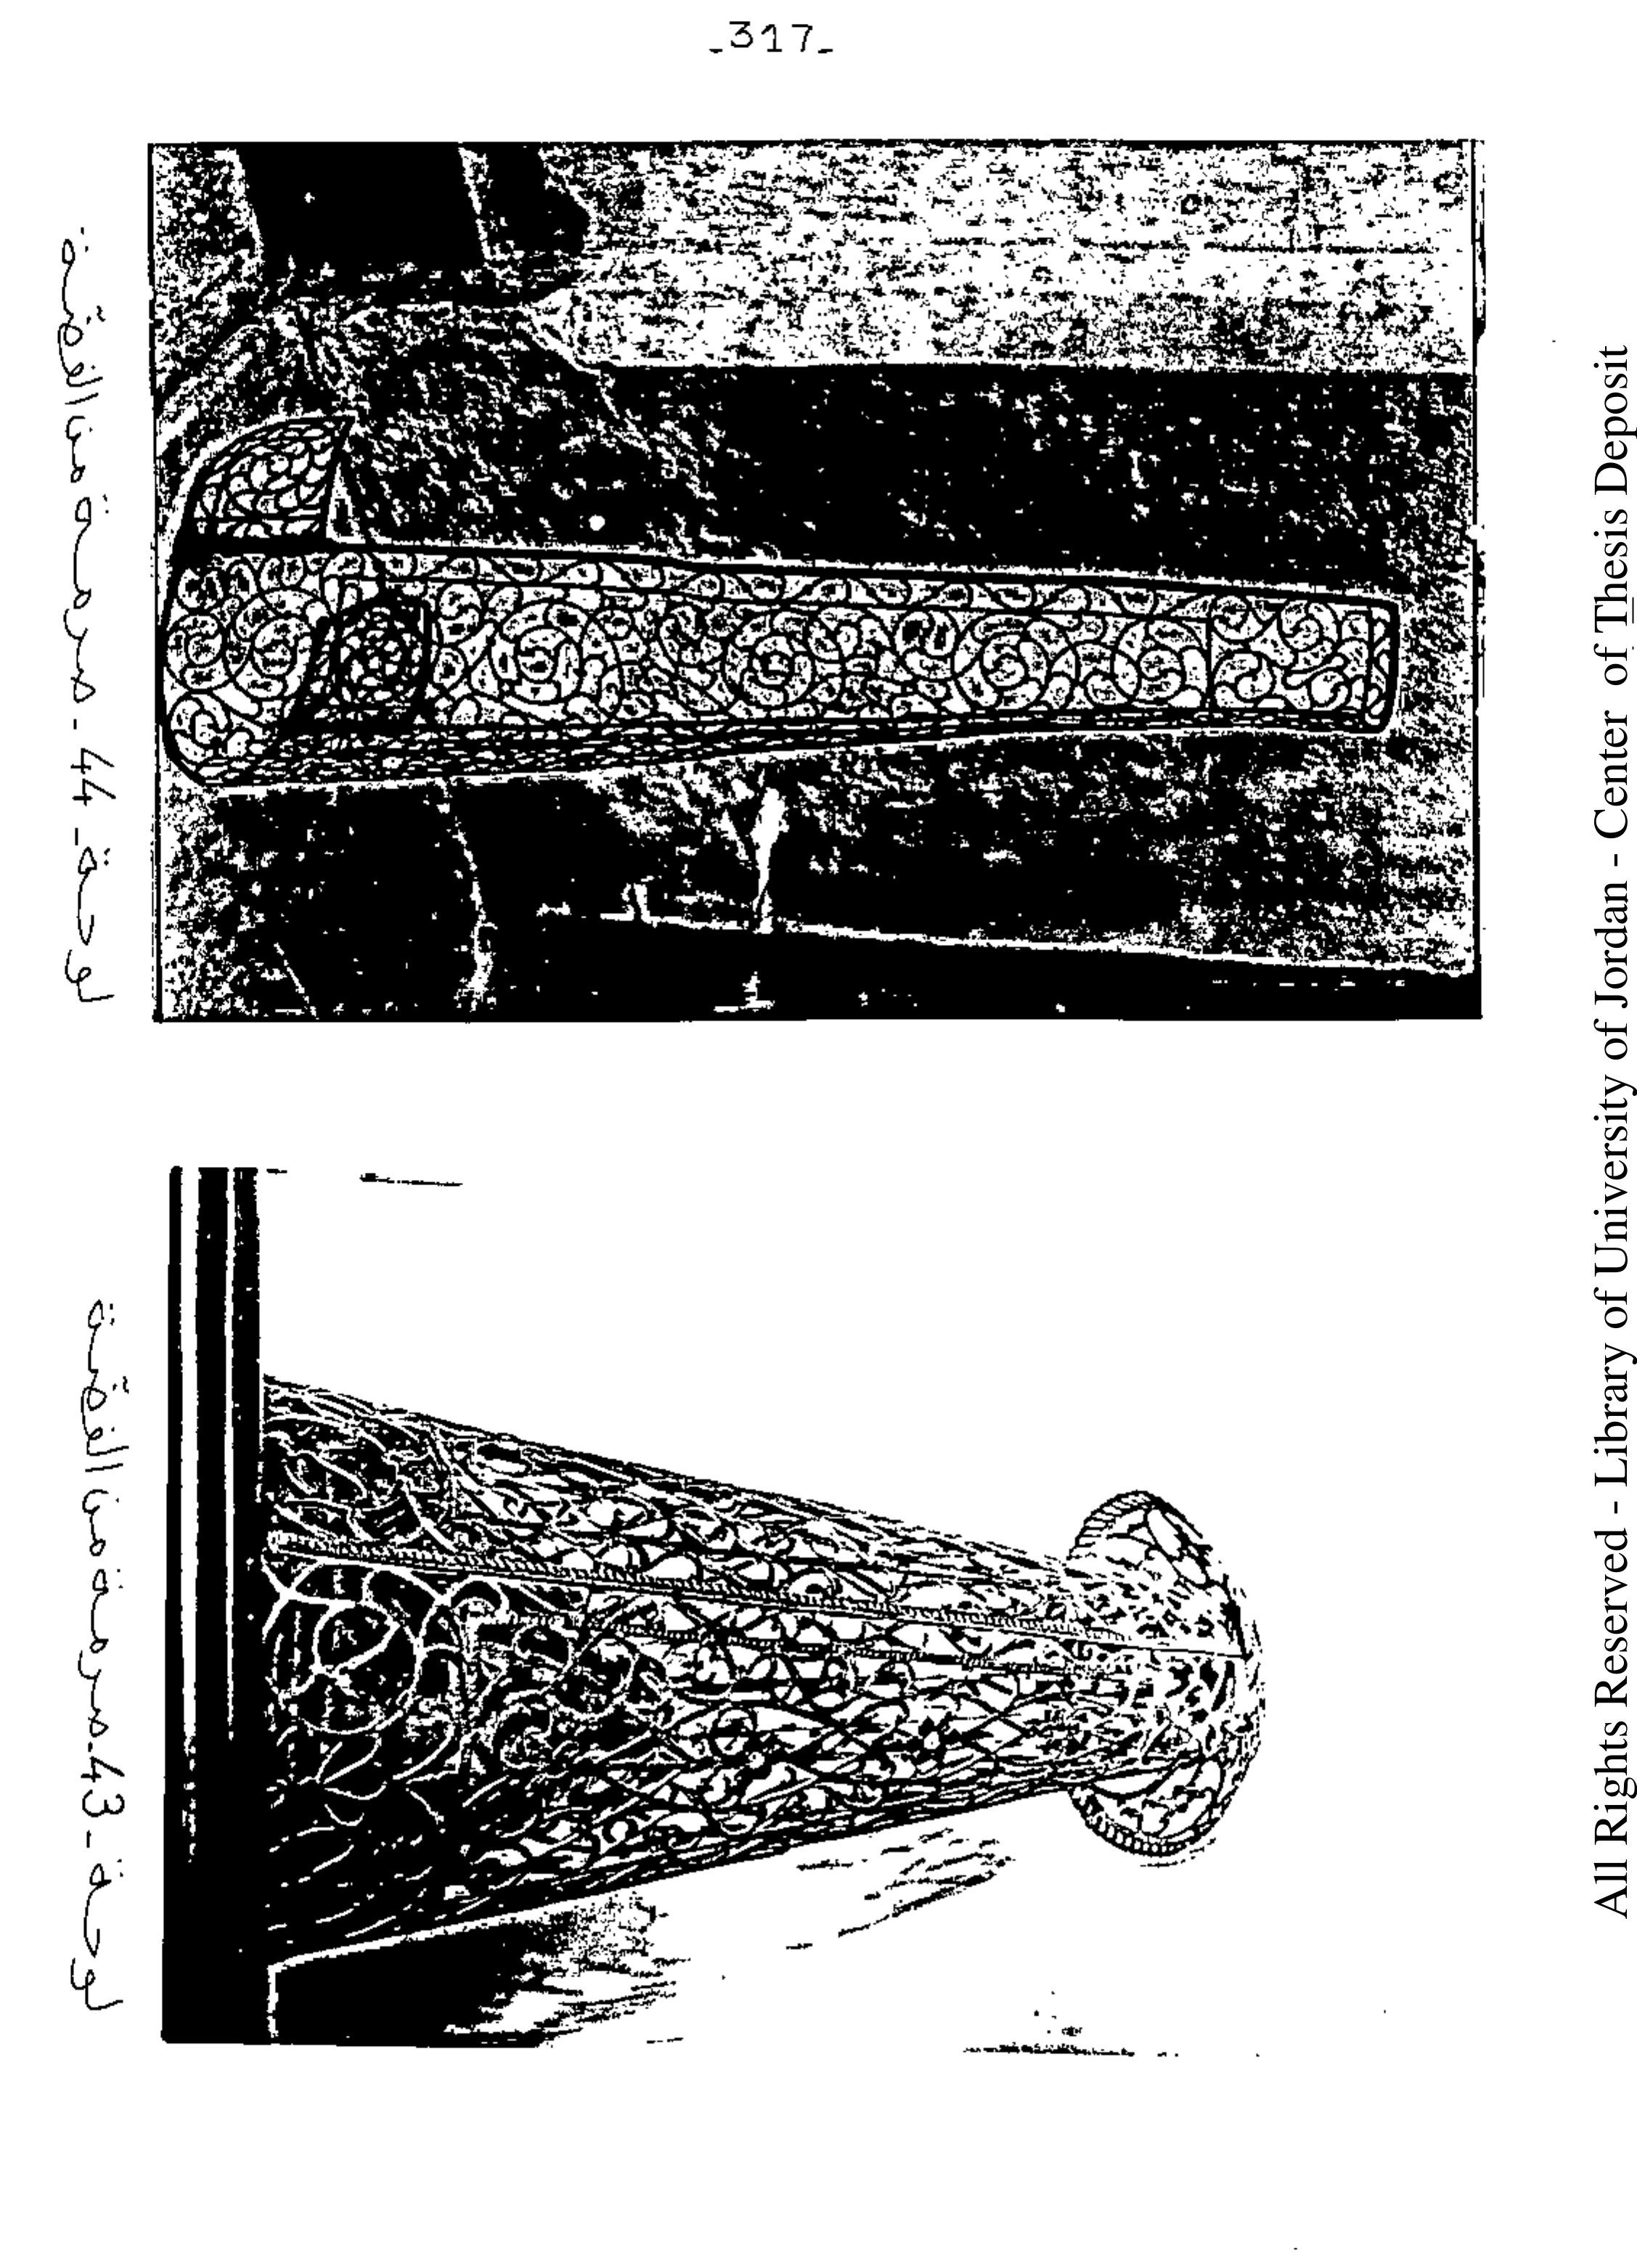 -317-
لوحة - 44 - مرصة من الفضة
لوحة - 43 - مرصة من الفضة
All Rights Reserved - Library of University of Jordan - Center of Thesis Deposit